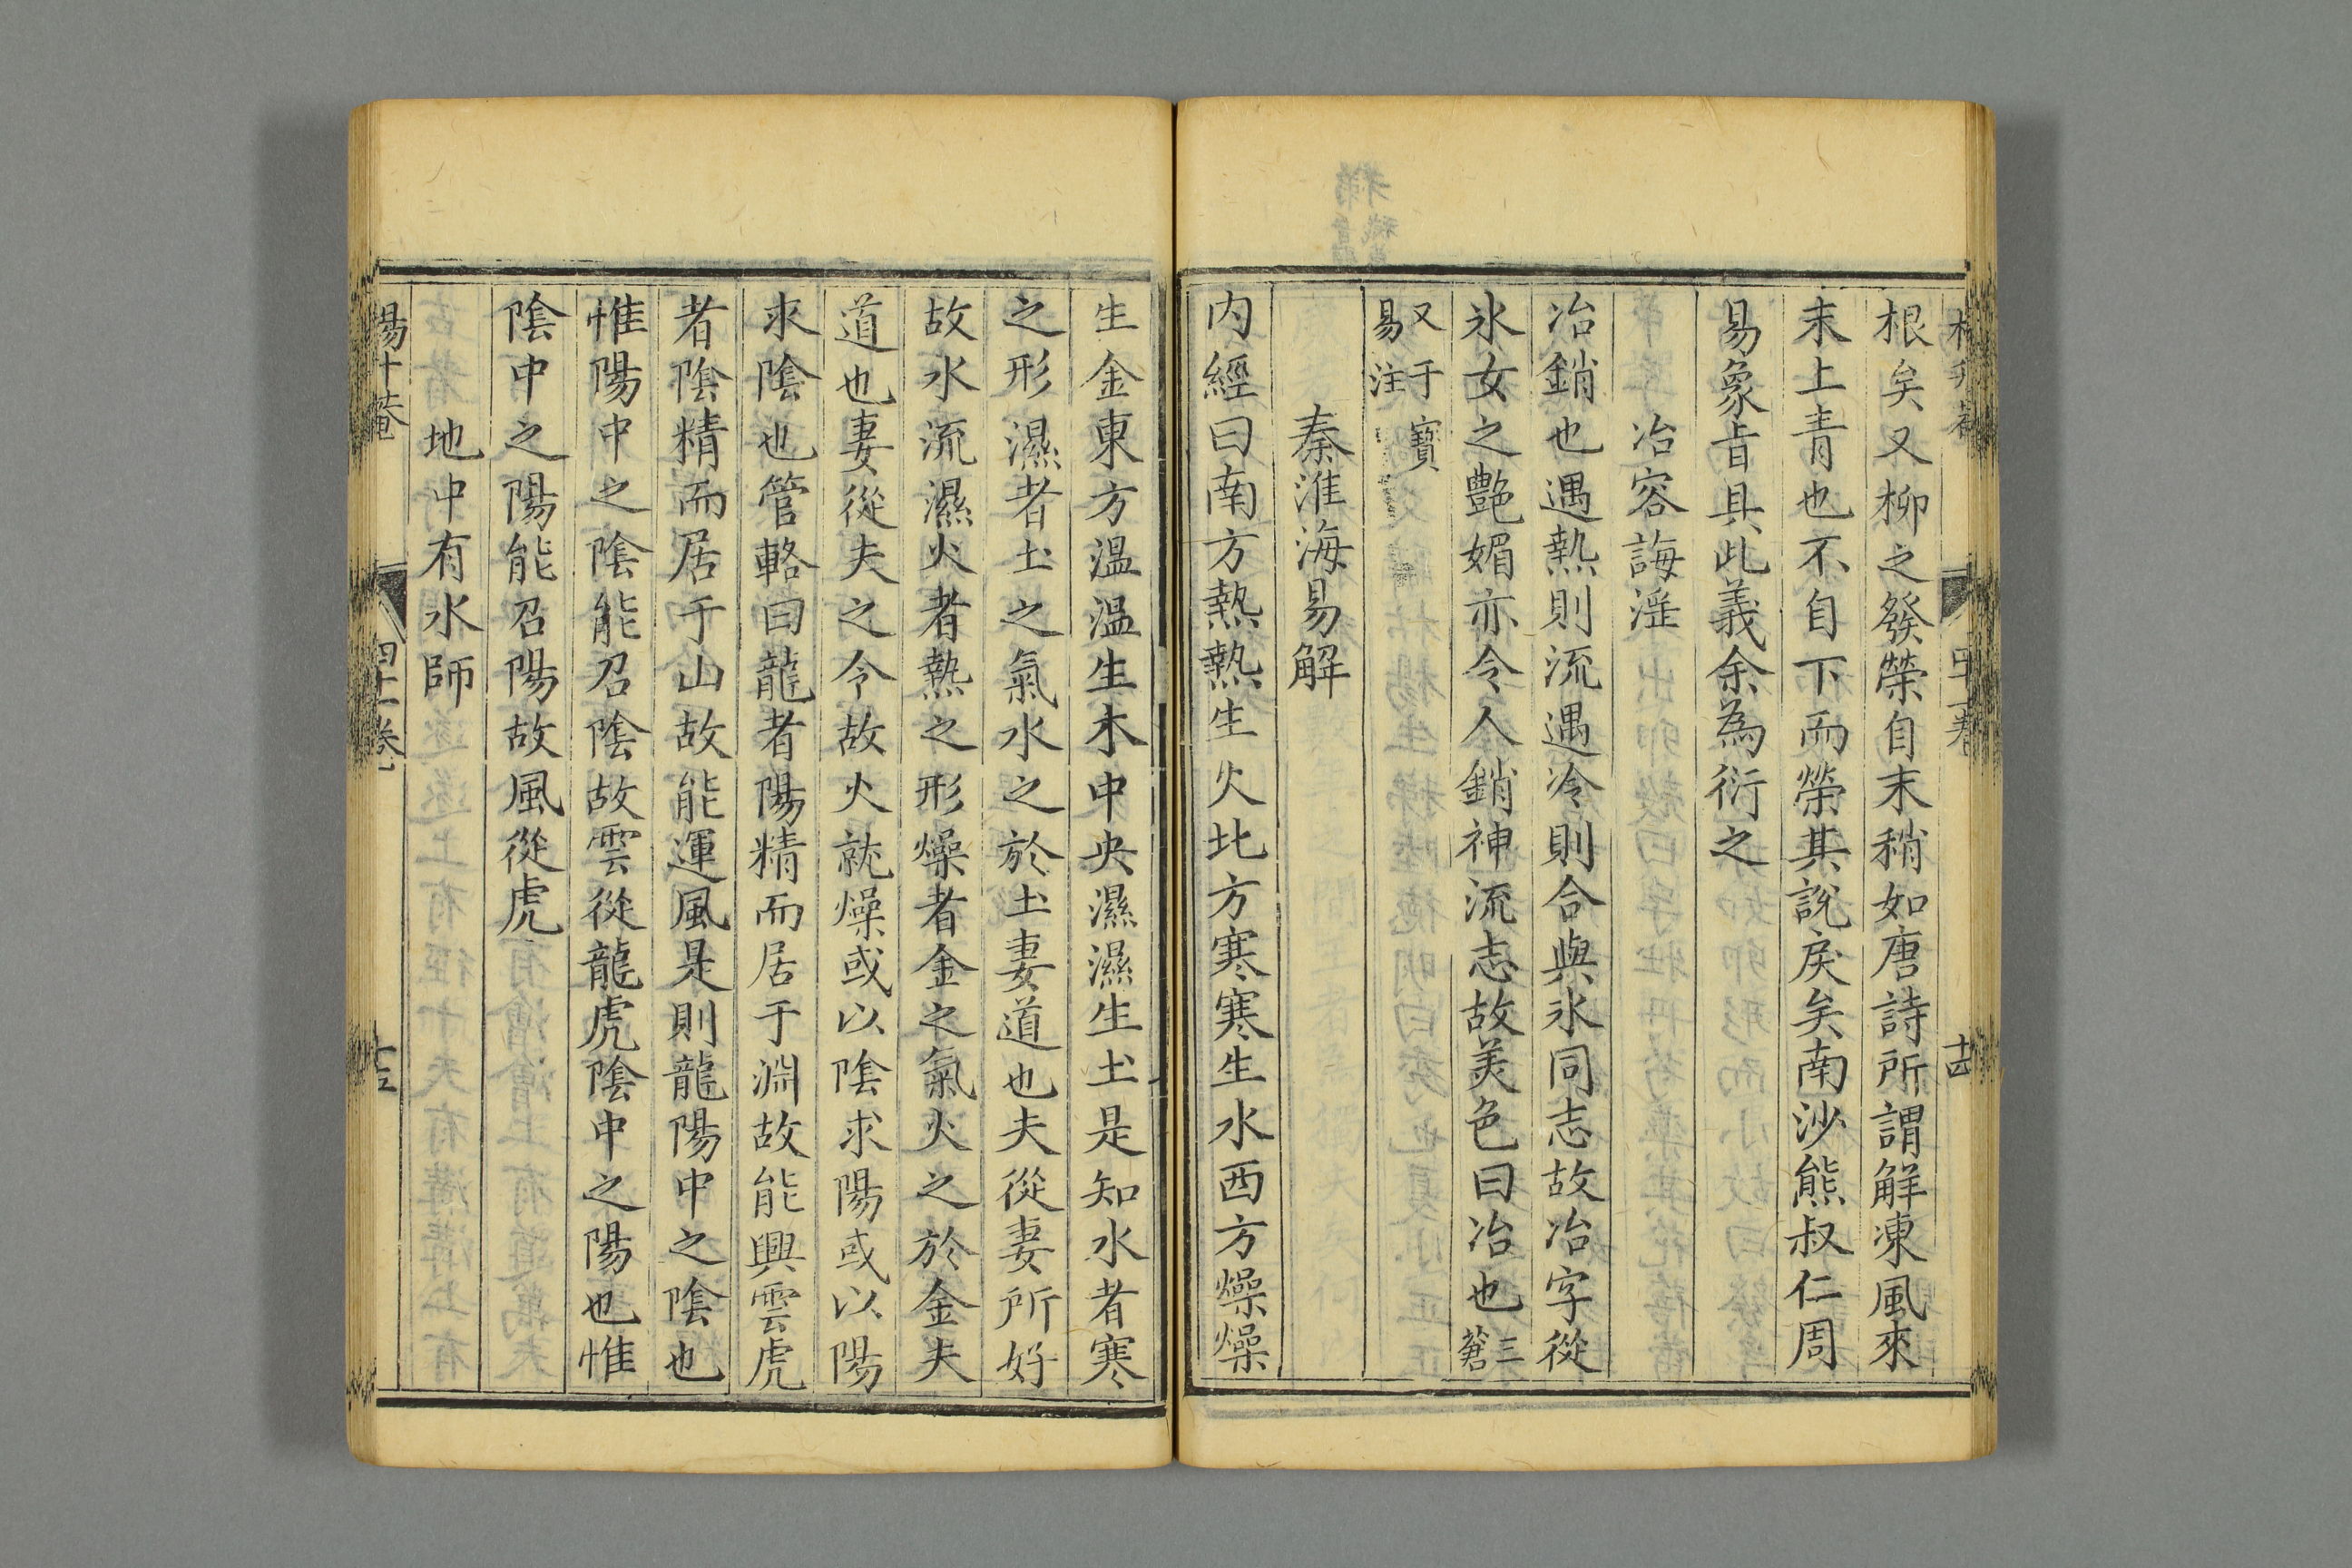 根矣又柳之發榮自末稍如唐詩所謂解凍風來
末上青也不自下而榮其說戾矣南沙熊叔仁周
易象旨具此義余為衍之
冶容誨淫
冶銷也遇熱則流遇冷則合與氷同志故冶字從
氷女之艷媚亦令人銷神流志故美色曰冶也三蒼
又于寶
易注
秦淮海易解
内經曰南方熱熱生火北方寒寒生水西方燥燥
十四
生金東方温温生木中央濕濕生土是知水者寒
之形濕者土之氣水之於土妻道也夫從妻所好
故水流濕火者熱之形燥者金之氣火之於金夫
道也妻從夫之令故火就燥或以陰求陽或以陽
求陰也管輅曰龍者陽精而居于淵故能興雲虎
者陰精而居于山故能運風是則龍陽中之陰也
惟陽中之陰能召陰故雲從龍虎陰中之陽也惟
陰中之陽能召陽故風從虎
地中有水師
四十一卷
十五